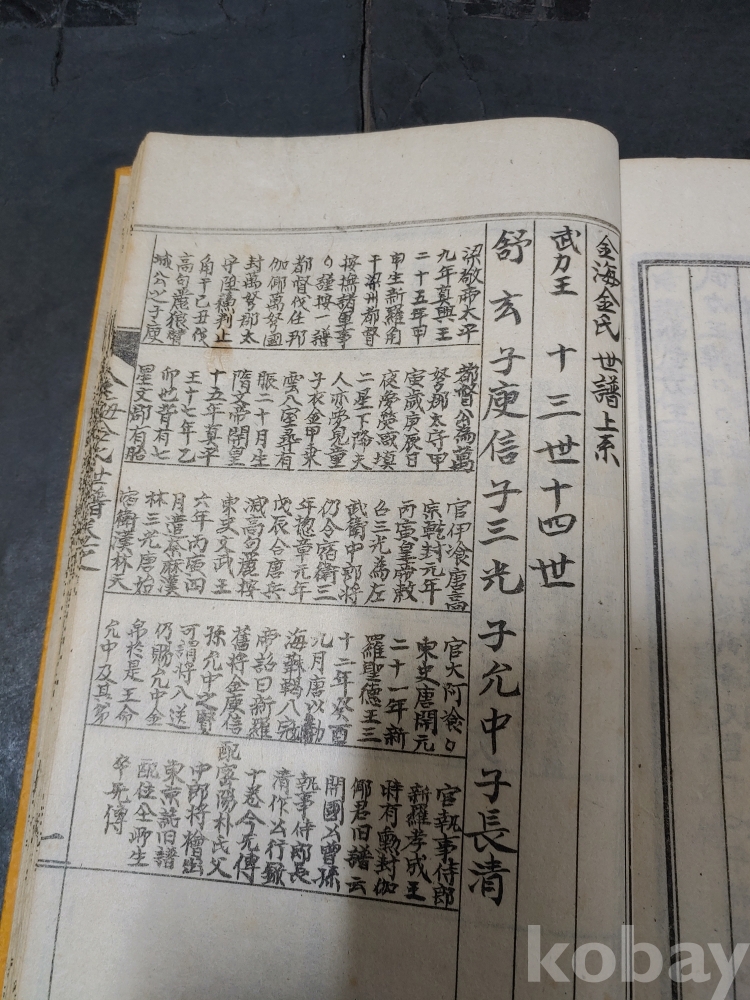 金海金氏世譜上系
武力王 十三世十四世
舒玄 子庾信 子三光 子允中 子長清
梁敬帝太平
九年真興王
二十五年甲
申生新羅角
干梁州都督
按撫諸軍事
〇謹按一譜
都督伐任那
伽倻萬弩國
封萬弩郡太
守陞穗判止
角干己丑伐
高句麗狼臂
城公之子庾
都督公為萬
弩郡太守甲
寅歲庚辰日
夜夢熒惑塡
二星下降夫
人亦夢見童
子衣金甲乘
雲入室尋有
娠二十月生
隋文帝開皇
十五年真平
王十七年乙
卯也背有七
星文郡有胎
官伊飡唐高
宗乾封元年
丙寅皇帝敕
召三光為左
武衛中郎將
仍令宿衛三
年惣章元年
戊辰合唐兵
滅高句麗按
東史文武王
六年丙寅四
月遣奈麻漢
林三光唐始
宿衛漢林天
官大阿飡〇
東史唐開元
二十一年新
羅聖德王三
十二年癸酉
九月唐以勃
海靺鞨入寇
帝詔曰新羅
舊將金庾信
孫允中之賢
可謂將入送
仍賜允中金
帛於是王命
允中及其弟
官執事侍郎
新羅孝成王
時有勳封伽
倻君旧譜云
開國公曾孫
執事侍郎長
清作公行錄
十卷今允傳
配密陽朴氏父
中郎將檜出
東京誌旧譜
配位仝所生
卒死傳
金海金氏世譜卷之
一
kobay